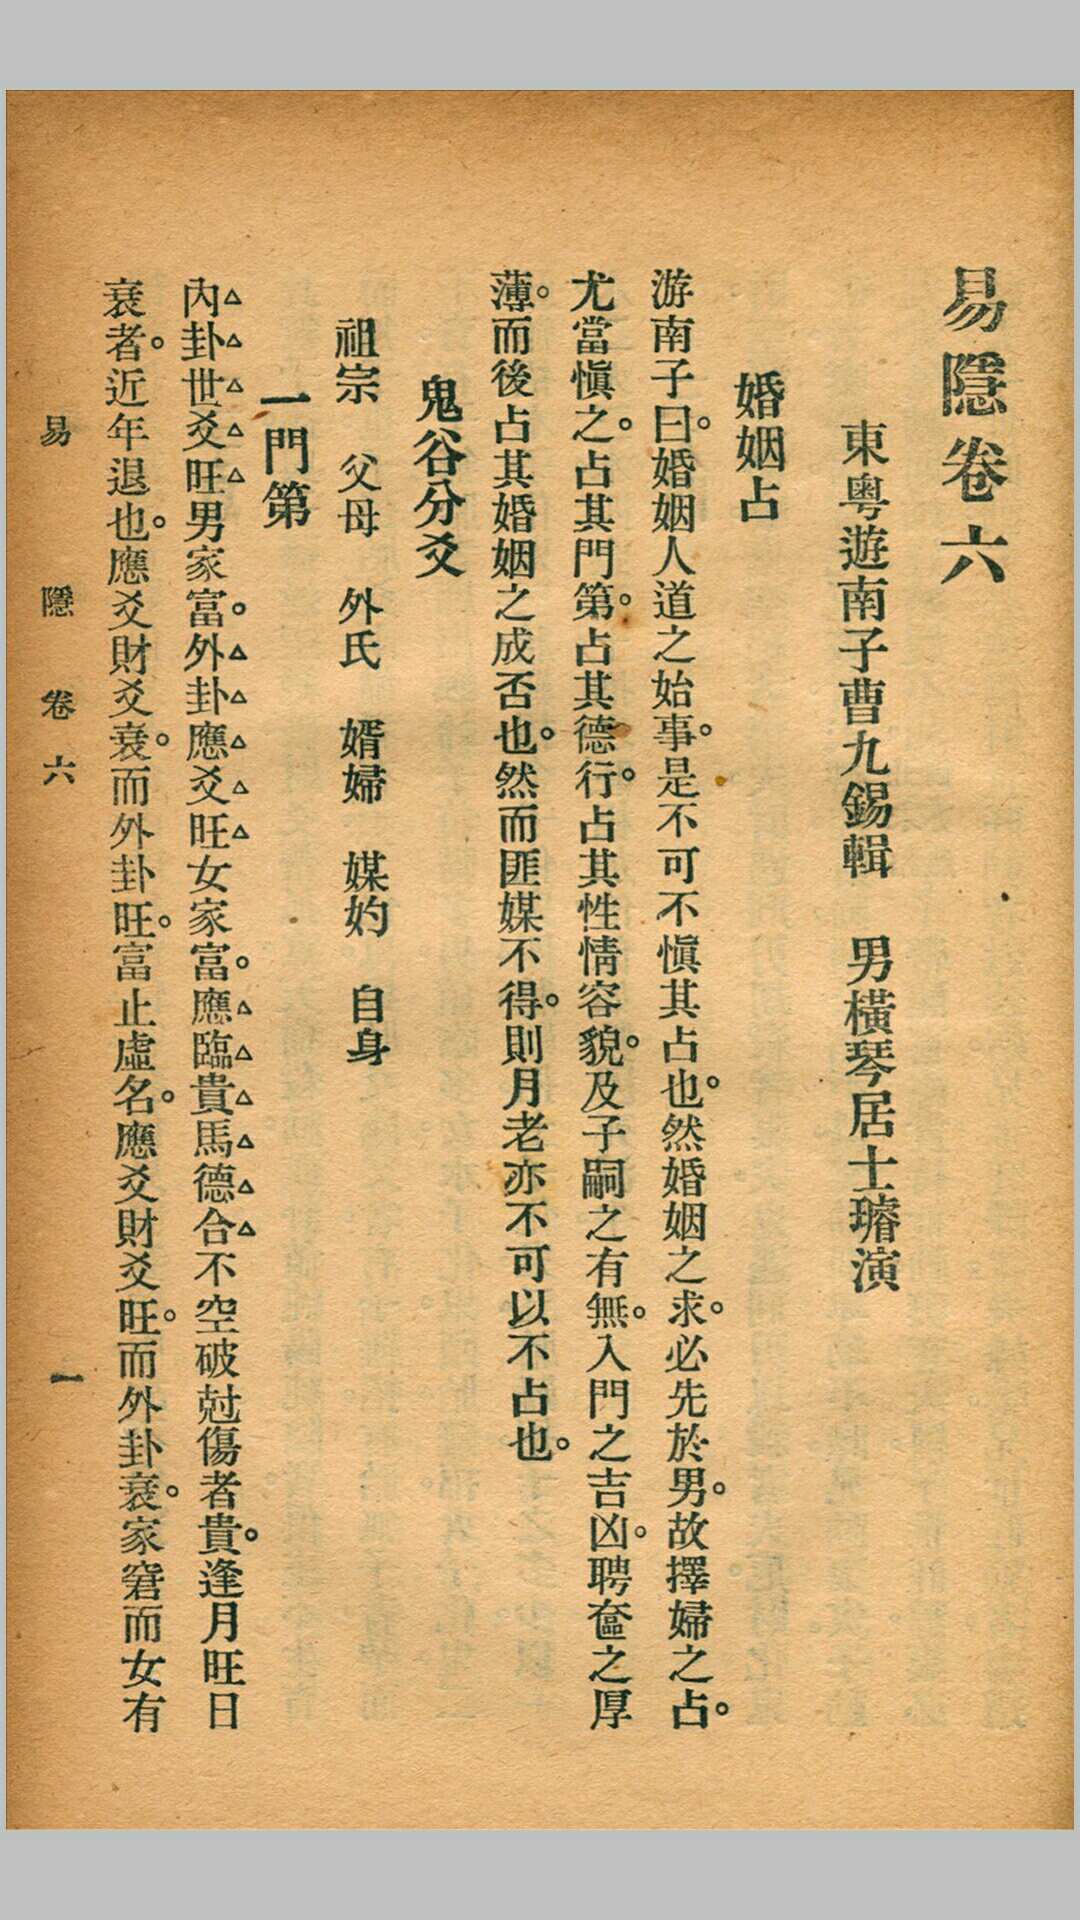 易隱卷六
東粵遊南子曹九錫輯　男橫琴居士璿演
婚姻占
游南子曰。婚姻人道之始事。是不可不愼其占也。然婚姻之求。必先於男。故擇婦之占。
尤當愼之。占其門第。占其德行。占其性情容貌。及子嗣之有無。入門之吉凶。聘奩之厚
薄。而後占其婚姻之成否也。然而匪媒不得。則月老亦不可以不占也。
鬼谷分爻
祖宗　父母　外氏　婿婦　媒妁　自身
一門第
內卦世爻旺男家富。外卦應爻旺女家富。應臨貴馬德合不空破尅傷者貴。逢月旺日
衰者。近年退也。應爻財爻衰。而外卦旺。富止虛名。應爻財爻旺。而外卦衰。家窘而女有
易　隱　卷六　一